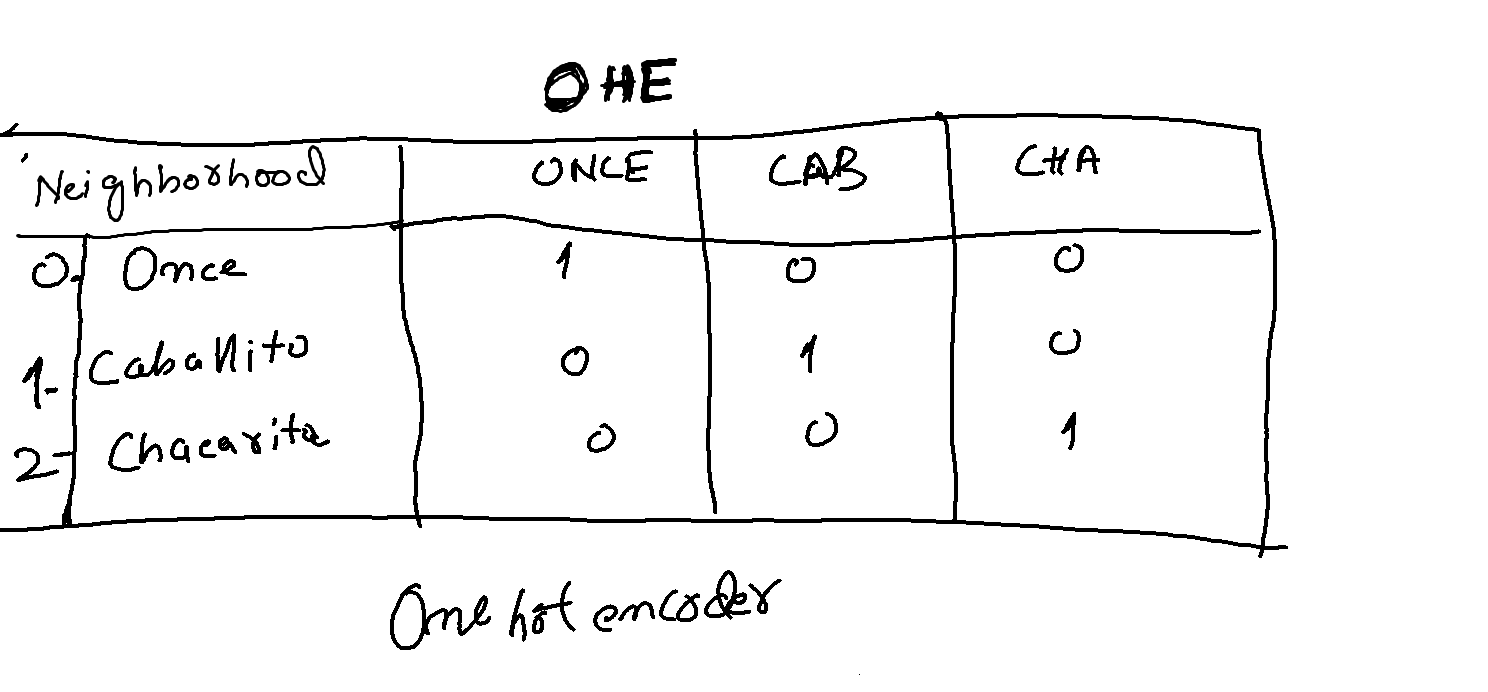 OHE
Neighborhood ONCE CAB CHA
0- Once 1 0 0
1- Caballito 0 1 0
2- Chacarita 0 0 1
One hot encoder